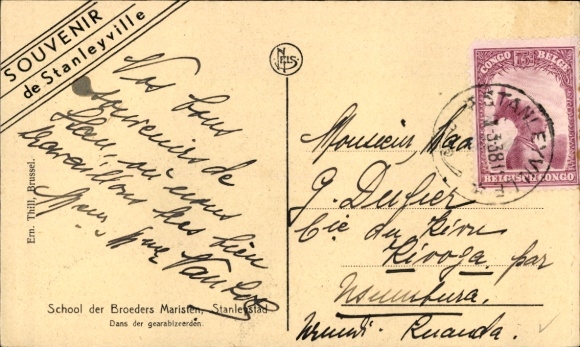 SOUVENIR
de Stanleyville
Vos bons
souvenirs de
Stan, où nous
travaillons très bien
Mr & Mme Van
Ern. Thill, Brussel.
NELS
School der Broeders Maristen, Stanleystad
Dans der gearabizeerden.
CONGO BELGE
BELGISCH CONGO
STANLEYV
Monsieur Mad
G. Dufier
Cie du Kivu
Kivoga, par
Usumbura.
Urundi - Ruanda.